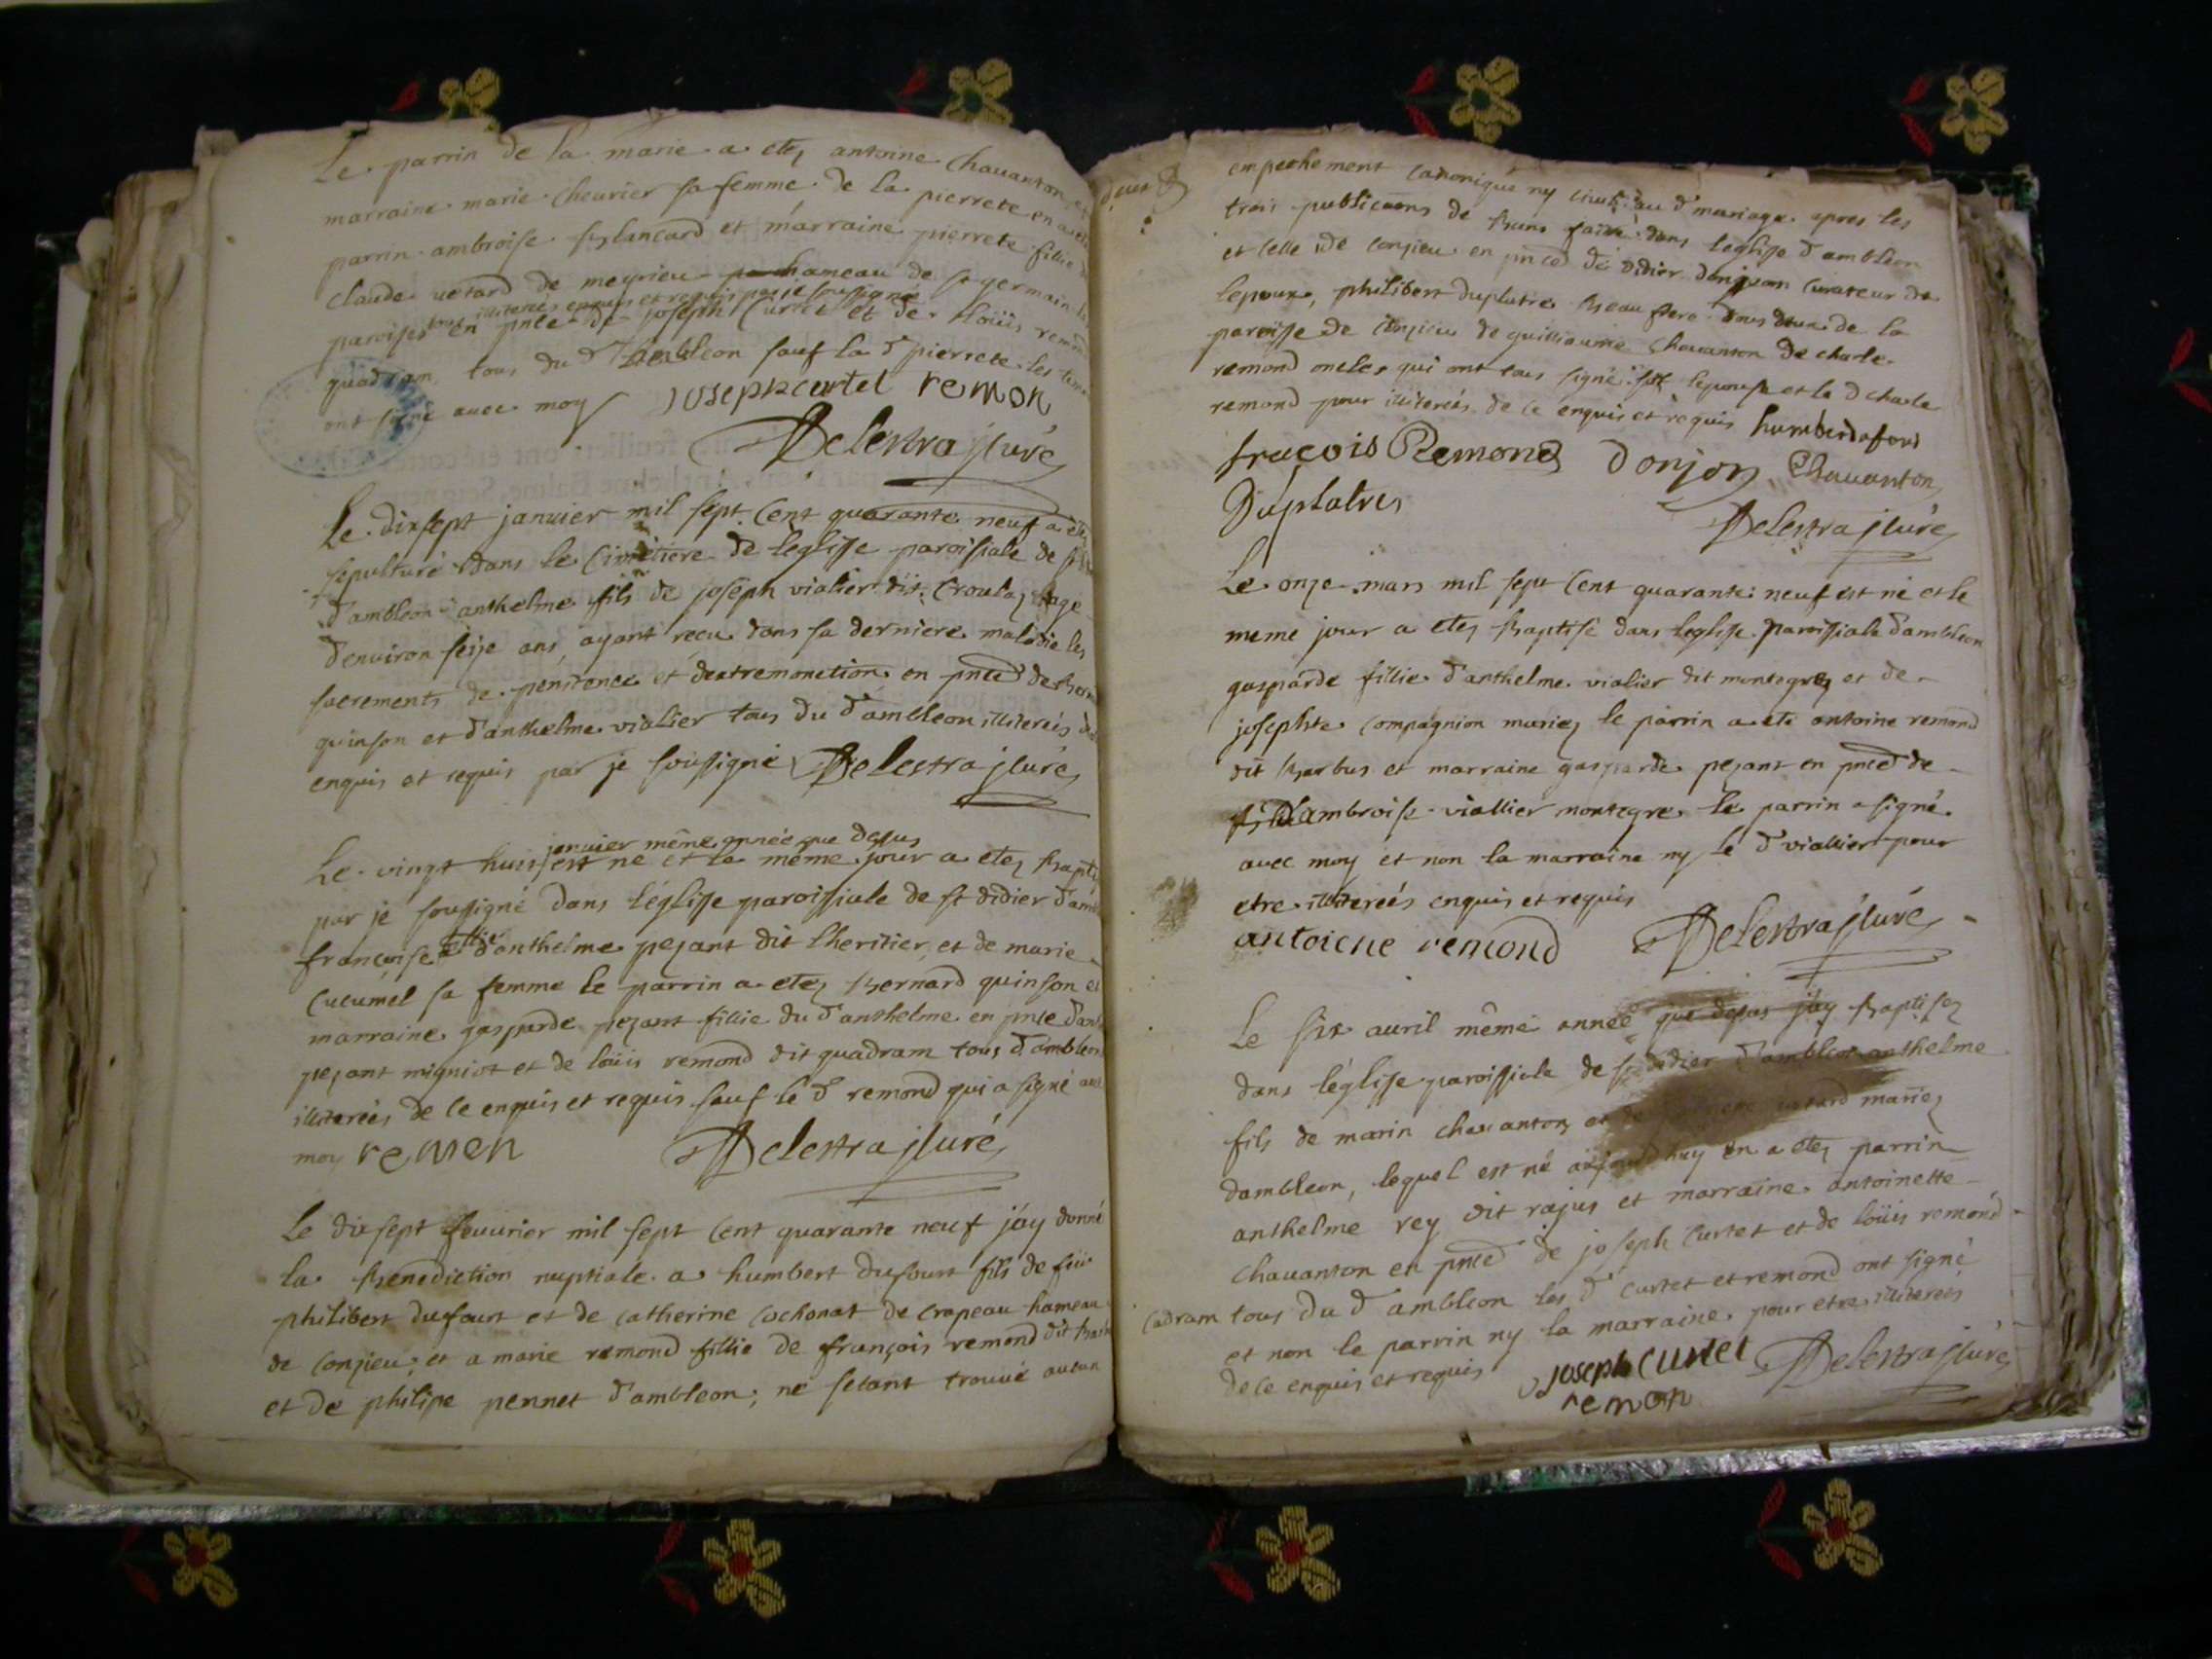 Le parrin de la marie a etez antoine Chauanton et
marraine marie cheurier sa femme de la pierrete en a
parrin ambroise sylancard et marraine pierrete fillie
claude uetard de meyrieu hameau de st germain les
illiterés enquis et requis par je soussigné
paroises en pnce de joseph Curtet et de loüis remond
quadram tous du d ambleon sauf la d pierrete les
ont signé auec moy joseph curtet remon
Delestra jcuré
Le dixsept januier mil sept Cent quarante neuf a été
sepulturé dans le Cimetiere de leglisse paroissiale de st
d'ambleon anthelme fils de joseph vialier dit Croulaz agé
d'enuiron seize ans, ayant recu dans sa derniere maladie les
sacrements de penitence et dextremonction en pnce de
quinson et d'anthelme vialier tous du d'ambleon illiterés
enquis et requis par je soussigné Delestra jcuré
januier même année que desus
Le vingt huit est né et le même jour a etez
par je soussigné dans l'églisse paroissiale de st didier
françoise fillie d'anthelme pezant dit lheritier et de marie
Cucumel sa femme le parrin a etez bernard quinson et
marraine gasparde pezant fillie du d anthelme en pnce
pezant migniot et de loüis remond dit quadram tous d'ambleon
illiterés de ce enquis et requis sauf le d remond qui a signé
moy remen Delestra jcuré
Le dixsept feuurier mil sept Cent quarante neuf j'ay donné
la benediction nuptiale a humbert dufourt fils de feu
philibert dufourt et de Catherine Cochonat de Crapeau hameau
de Conjieu; et a marie remond fillie de françois remond dit
et de philipe pennet d'ambleon; ne setant trouué aucun
empechement Canonique ny au d mariage apres les
trois publications de bans dans leglisse d'ambleon
et Celle de Conjieu en pnce de didier donjon Curateur de
lepoux, philibert duplatre beau frere tous deux de la
paroisse de Conjieu de guilliaume Chauanton de charle
remond oncles qui ont tous signé lepouse et le d charle
remond pour illiterés de ce enquis et requis humberdafour
fracois Remond donjon Chauanton
Duplatre Delestra jcuré
Le onze mars mil sept Cent quarante neuf est né et le
meme jour a etez baptisé dans leglisse paroissiale d'ambleon
gasparde fillie d'anthelme vialier dit montegre et de
josephte Compagnion mariez le parrin a ete antoine remond
dit barbus et marraine gasparde pezant en pnce de
ambroise viallier montegre le parrin a signé
auec moy et non la marraine ny le d viallier pour
etre illiterés enquis et requis
antoiene remond Delestra jcuré
Le six auril même année que desus j'ay baptisez
dans léglisse paroissiale de st didier d'ambleon anthelme
fils de marin chauanton et de uetard mariez
dambleon, lequel est né aujourdhuy en a etez parrin
anthelme rey dit rajus et marraine antoinette
Chauanton en pnce de joseph Curtet et de loüis remond
Cadram tous du d ambleon les d Curtet et remond ont signé
et non le parrin ny la marraine pour etre illiterés
de ce enquis et requis joseph Curtet Delestra jcuré
remon